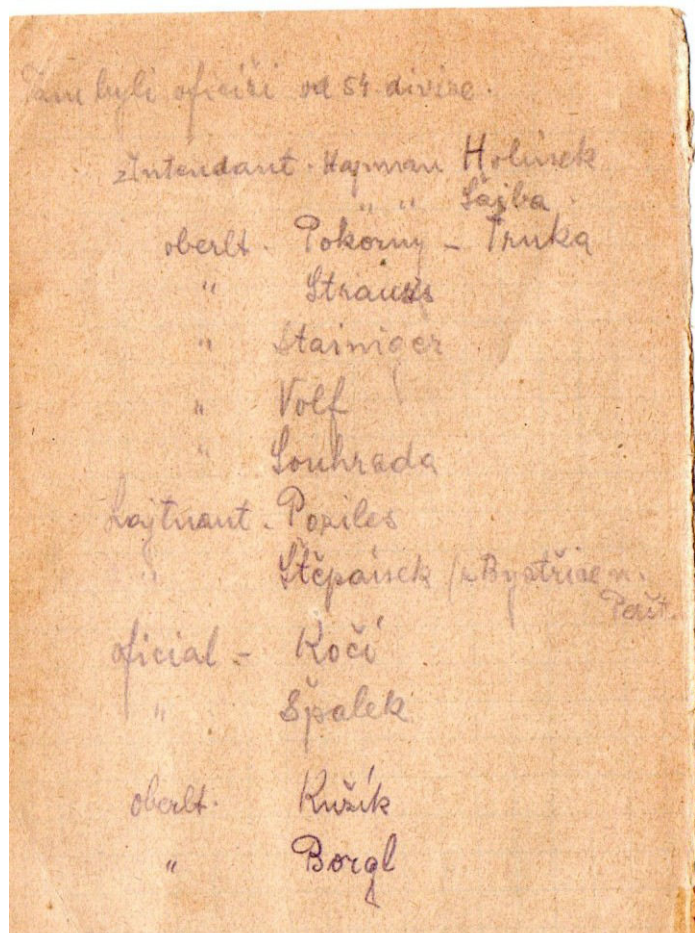 byli oficiři od 54 divise.
Intendant. Hapman Holinek
" " Šajba.
oberlt. Pokorny – Trnka
" Strauss
" Stainiger
" Volf
" Souhrada
Lajtnant. Posiles
" Štěpánek /z Bystřice n.
Pešt.
oficial – Kočí
" Špalek
oberlt. Kužík
" Borgl